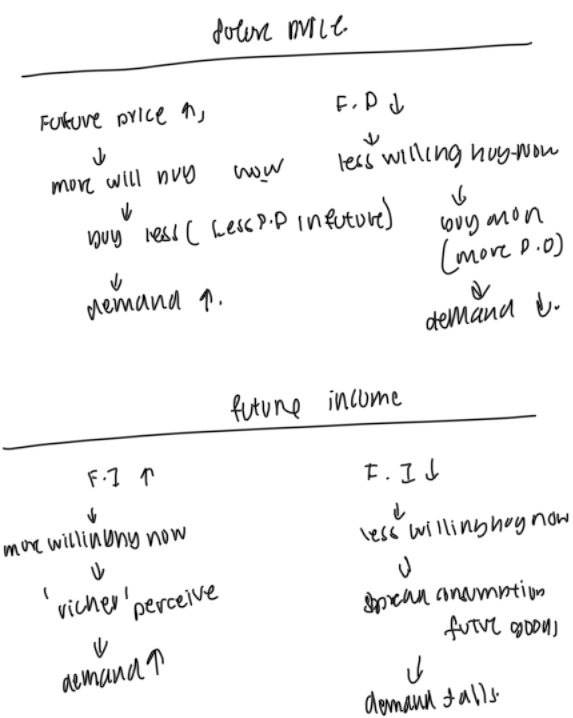 future price
Future price ↑,
↓
more will buy now
↓
buy less ( Less P.P in future)
↓
demand ↑.
F.P ↓
↓
less willing buy now
↓
buy more
(more P.P)
↓
demand ↓.
future income
F.I ↑
↓
more willing buy now
↓
'richer' perceive
↓
demand ↑
F.I ↓
↓
less willing buy now
↓
spread consumption
future goods
↓
demand falls.